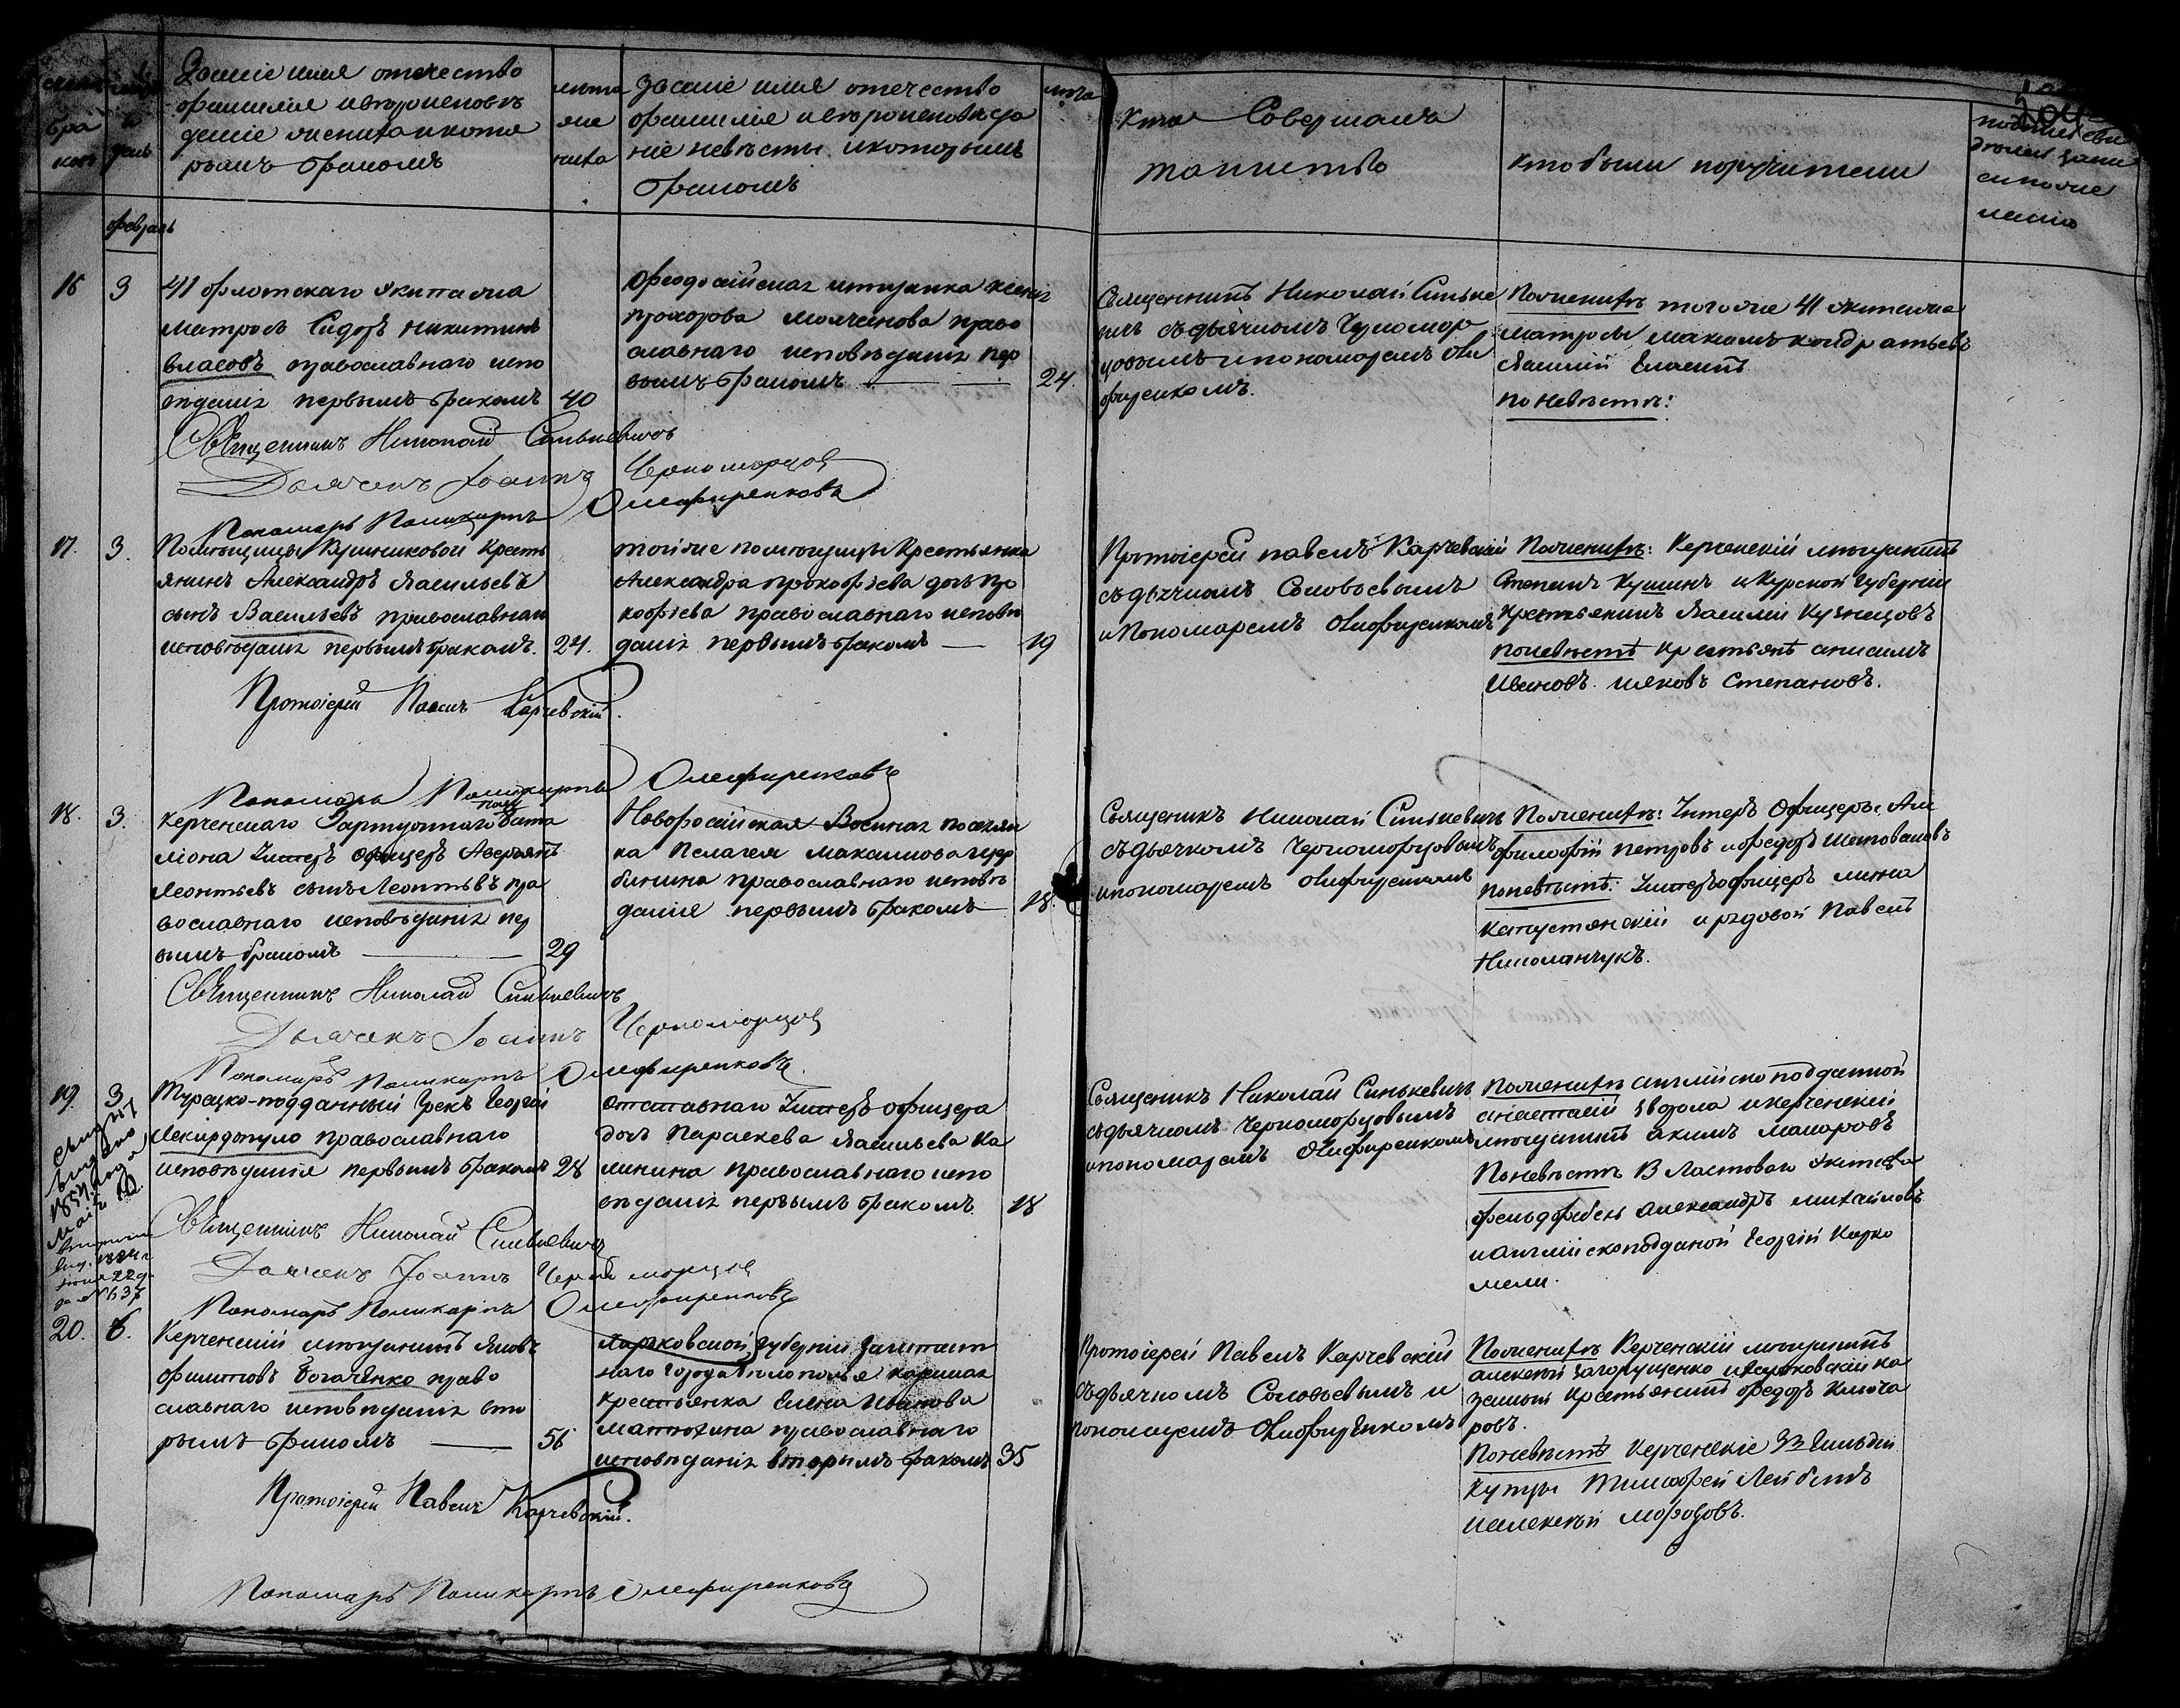 Званіе имя отечество
фамилія и вѣроисповѣ
деніе жениха и кото
рымъ бракомъ
лѣта
же
ниха
Званіе имя отечество
фамиліе и вѣроисповѣда
ніе невѣсты и которымъ
бракомъ
лѣта
Кто Совершалъ
таинство
Кто были поручители
февраль
16
3
41 флотскаго Экипажа
матросъ Сидоръ Никитинъ
Власовъ православнаго испо
вѣданія первымъ бракомъ
40
Феодосійская мѣщанка Ксенія
Прохорова Молчанова право
славнаго исповѣданія пер
вымъ бракомъ
24
Священникъ Николай Синьке
вичъ съ дьячкомъ Черномор
цовымъ и пономаремъ Оли
фиренкомъ.
По женихѣ того же 41 экипажа
матросы Максимъ Кондратьевъ
Василій
по невѣстѣ:
Священникъ Николай Синькевичъ
Дьячекъ Іоаннъ Черноморцов
Пономарь Поликарпъ Олефиренковъ
17.
3.
Помѣщицы Кушниковой Кресть
янинъ Александръ Васильевъ
сынъ Васильевъ православнаго
исповѣданія первымъ бракомъ.
24.
той же помѣщицы Крестьянка
Александра Прокофіева дочь Про
кофіева православнаго исповѣ
данія первымъ бракомъ
19
Протоіерей Павелъ Карчевскій
съ дьячкомъ Соловьевымъ
и Пономаремъ Олифиренкомъ
По женихѣ: Керченскій мѣщанинъ
Степанъ Кушинъ и Курской губерніи
Крестьянинъ Василий Кузнецовъ
по невѣстѣ крестьянѣ Анисимъ
Ивановъ и Яковъ Степановъ.
Протоіерей Павелъ Карчевскій.
Пономарь Поликарпъ Олефиренковъ
18.
3.
Керченскаго Гарнизоннаго Бата
ліона Унтеръ Офицеръ Аверьянъ
Леонтьевъ сынъ Леонтьевъ пра
вославнаго исповѣданія пер
вымъ бракомъ
29
Новоросійская Военная поселян
ка Пелагея Максимова
православнаго исповѣ
данія первымъ бракомъ
18
Священикъ Николай Синькевичъ
съ дьячкомъ Черноморцовымъ
и пономаремъ Олифиренкомъ
По женихѣ: Унтеръ Офицеры, Ан
филофій Петровъ и Федоръ Шаповаловъ
по невѣстѣ: Унтеръ офицеръ Мина
Капустянскій и рядовой Павелъ
Николайчукъ.
Священникъ Николай Синькевичъ
Дьячекъ Іоаннъ Черноморцов
Пономарь Поликарпъ Олефиренковъ.
19.
3
Турецко-подданный Грекъ Георгій
Лекирдопуло православнаго
исповѣданія первымъ бракомъ
28
Отставнаго Унтеръ-офицера
дочь Параскева Васильева Ка
линина православнаго испо
вѣданія первымъ бракомъ
18
Священикъ Николай Синькевичъ
съ дьячкомъ Черноморцовымъ
и пономаремъ Олифиренкомъ
По женихѣ англійско подданной
Анастасій и Керченскій
мѣщанинъ Акимъ Макаровъ
По невѣстѣ Ластоваго экипажа
Фельдфебель Александръ Михайловъ
и Англійско подданой Георгій Карко
мели.
выдано
1857 года
Мая
1884 г
іюня 22 д.
за № 637
Священникъ Николай Синькевичъ
Дьячекъ Іоаннъ Черноморцов
Пономарь Поликарпъ Олефиренковъ
20.
6.
Керченскій мѣщанинъ Яковъ
Филиповъ Богаченко право
славнаго исповѣданія вто
рымъ бракомъ
56
Харьковской Губерніи Заштат
наго города Бѣлополья казенная
крестьянка Елена Иванова
Матюхина православнаго
исповѣданія вторымъ бракомъ
35
Протоіерей Павелъ Карчевскій
съ дьячкомъ Соловьевымъ и
пономаремъ Олифиренкомъ
По женихѣ Керченскій мѣщанинъ
Алексѣй Загорущенко и Харьковскій ка
зенный крестьянинъ Федоръ Ключа
ровъ.
По невѣстѣ Керченскіе
купцы Тимофей Лейбинъ
и Алексѣй Морозовъ.
Протоіерей Павелъ Карчевскій.
Пономарь Поликарпъ Олефиренковъ